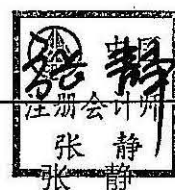 中国
注册会计师
张 静
张 静